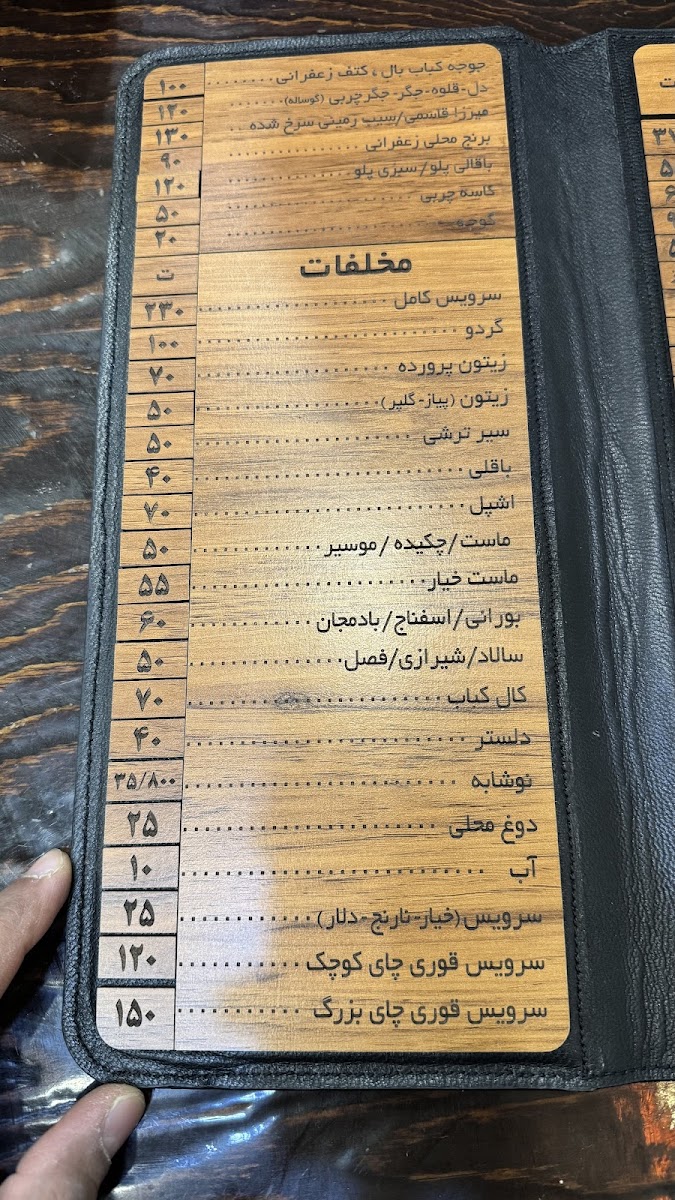 جوجه کباب بال ، کتف زعفرانی ........ ۱۰۰
دل-قلوه-جگر-جگر چربی (گوساله) ........ ۱۲۰
میرزا قاسمی/سیب زمینی سرخ شده ... ۱۳۰
برنج محلی زعفرانی ........ ۹۰
باقالی پلو/سبزی پلو ........ ۱۲۰
کاسه چربی ........ ۵۰
گوجه ........ ۲۰
مخلفات ت
سرویس کامل ........ ۲۳۰
گردو ........ ۱۰۰
زیتون پرورده ........ ۷۰
زیتون (پیاز-گلپر) ........ ۵۰
سیر ترشی ........ ۵۰
باقلی ........ ۴۰
اشپل ........ ۷۰
ماست/چکیده/موسیر ........ ۵۰
ماست خیار ........ ۵۵
بورانی/اسفناج/بادمجان ........ ۶۰
سالاد/شیرازی/فصل ........ ۵۰
کال کباب ........ ۷۰
دلستر ........ ۴۰
نوشابه ........ ۳۵/۸۰۰
دوغ محلی ........ ۲۵
آب ........ ۱۰
سرویس(خیار-نارنج-دلار) ........ ۲۵
سرویس قوری چای کوچک ........ ۱۲۰
سرویس قوری چای بزرگ ........ ۱۵۰